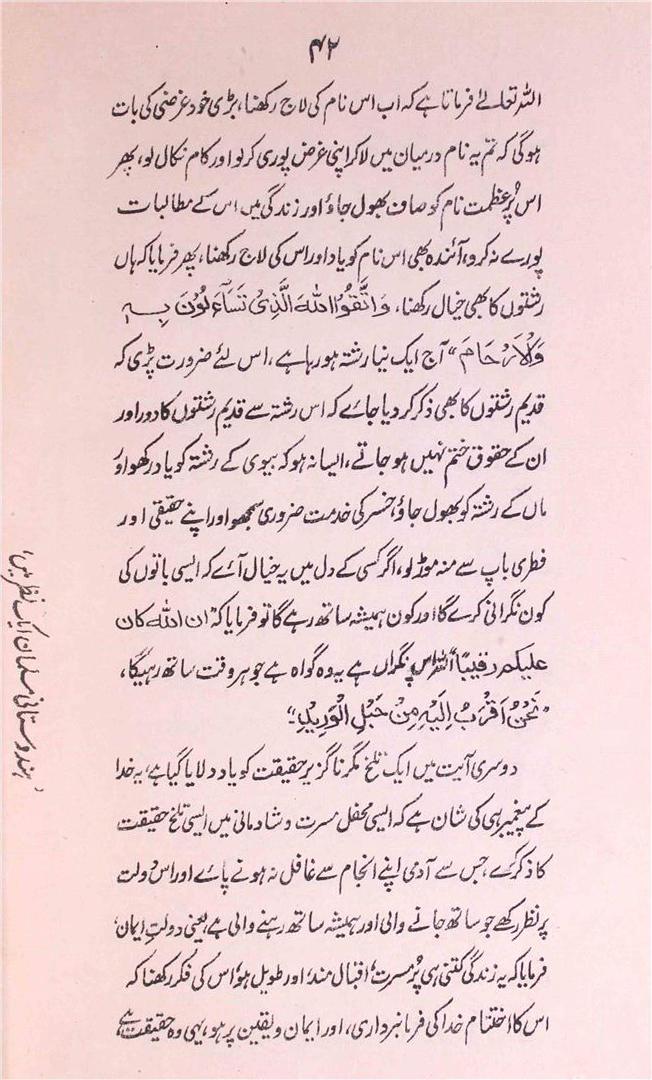 ۴۲
اللہ تعالےٰ فرماتا ہے کہ اب اس نام کی لاج رکھنا، بڑی خود غرضی کی بات
ہوگی کہ تم یہ نام درمیان میں لا کر اپنی غرض پوری کرلو اور کام نکال لو، پھر
اس پُر عظمت نام کو صاف بھول جاؤ اور زندگی میں اس کے مطالبات
پورے نہ کرو، آئندہ بھی اس نام کو یاد اور اس کی لاج رکھنا، پھر فرمایا کہ ہاں
رشتوں کا بھی خیال رکھنا، وَاتَّقُوا اللهَ الَّذِیْ تَسَآءَلُوْنَ بِہٖ
وَالْاَرْحَامَ" آج ایک نیا رشتہ ہو رہا ہے، اس لئے ضرورت پڑی کہ
قدیم رشتوں کا بھی ذکر کر دیا جائے کہ اس رشتہ سے قدیم رشتوں کا دور اور
ان کے حقوق ختم نہیں ہو جاتے، ایسا نہ ہو کہ بیوی کے رشتہ کو یاد رکھو اور
ماں کے رشتہ کو بھول جاؤ، خسر کی خدمت ضروری سمجھو اور اپنے حقیقی اور
فطری باپ سے منہ موڑ لو، اگر کسی کے دل میں یہ خیال آئے کہ ایسی باتوں کی
کون نگرانی کرے گا اور کون ہمیشہ ساتھ رہے گا تو فرمایا کہ "ان الله کان
علیکم رقیبًا" اللہ اس پر نگراں ہے یہ وہ گواہ ہے جو ہر وقت ساتھ رہیگا،
"نَحْنُ اَقْرَبُ اِلَیْہِ مِنْ حَبْلِ الْوَرِیْدِ"
دوسری آیت میں ایک تلخ مگر ناگزیر حقیقت کو یاد دلایا گیا ہے، یہ خدا
کے پیغمبر ہی کی شان ہے کہ ایسی محفل مسرت و شادمانی میں ایسی تلخ حقیقت
کا ذکر کرے، جس سے آدمی اپنے انجام سے غافل نہ ہونے پائے اور اس دولت
پر نظر رکھے جو ساتھ جانے والی اور ہمیشہ ساتھ رہنے والی ہے، یعنی دولتِ ایمان،
فرمایا کہ یہ زندگی کتنی ہی پُر مسرت، اقبال مند اور طویل ہو، اس کی فکر رکھنا کہ
اس کا اختتام خدا کی فرمانبرداری، اور ایمان و یقین پر ہو، یہی وہ حقیقت ہے
'ہندوستانی مسلمان ایک نظر میں'